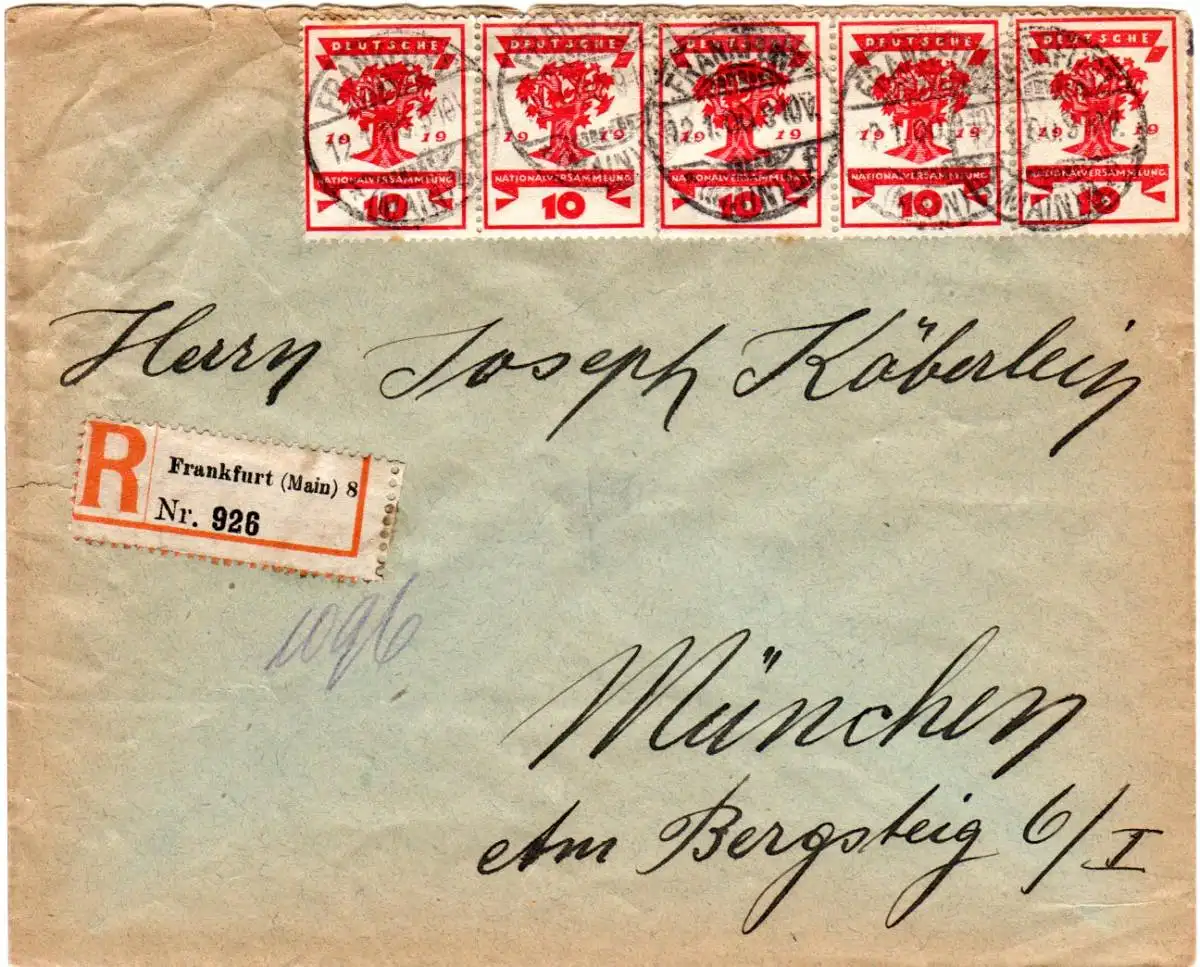 DEUTSCHE DEUTSCHE DEUTSCHE DEUTSCHE DEUTSCHE
1919 1919 1919 1919 1919
NATIONALVERSAMMLUNG NATIONALVERSAMMLUNG NATIONALVERSAMMLUNG NATIONALVERSAMMLUNG NATIONALVERSAMMLUNG
10 10 10 10 10
Herrn Joseph Käberlein
R Frankfurt (Main) 8
Nr. 926
1096
München
Am Bergsteig 6/I